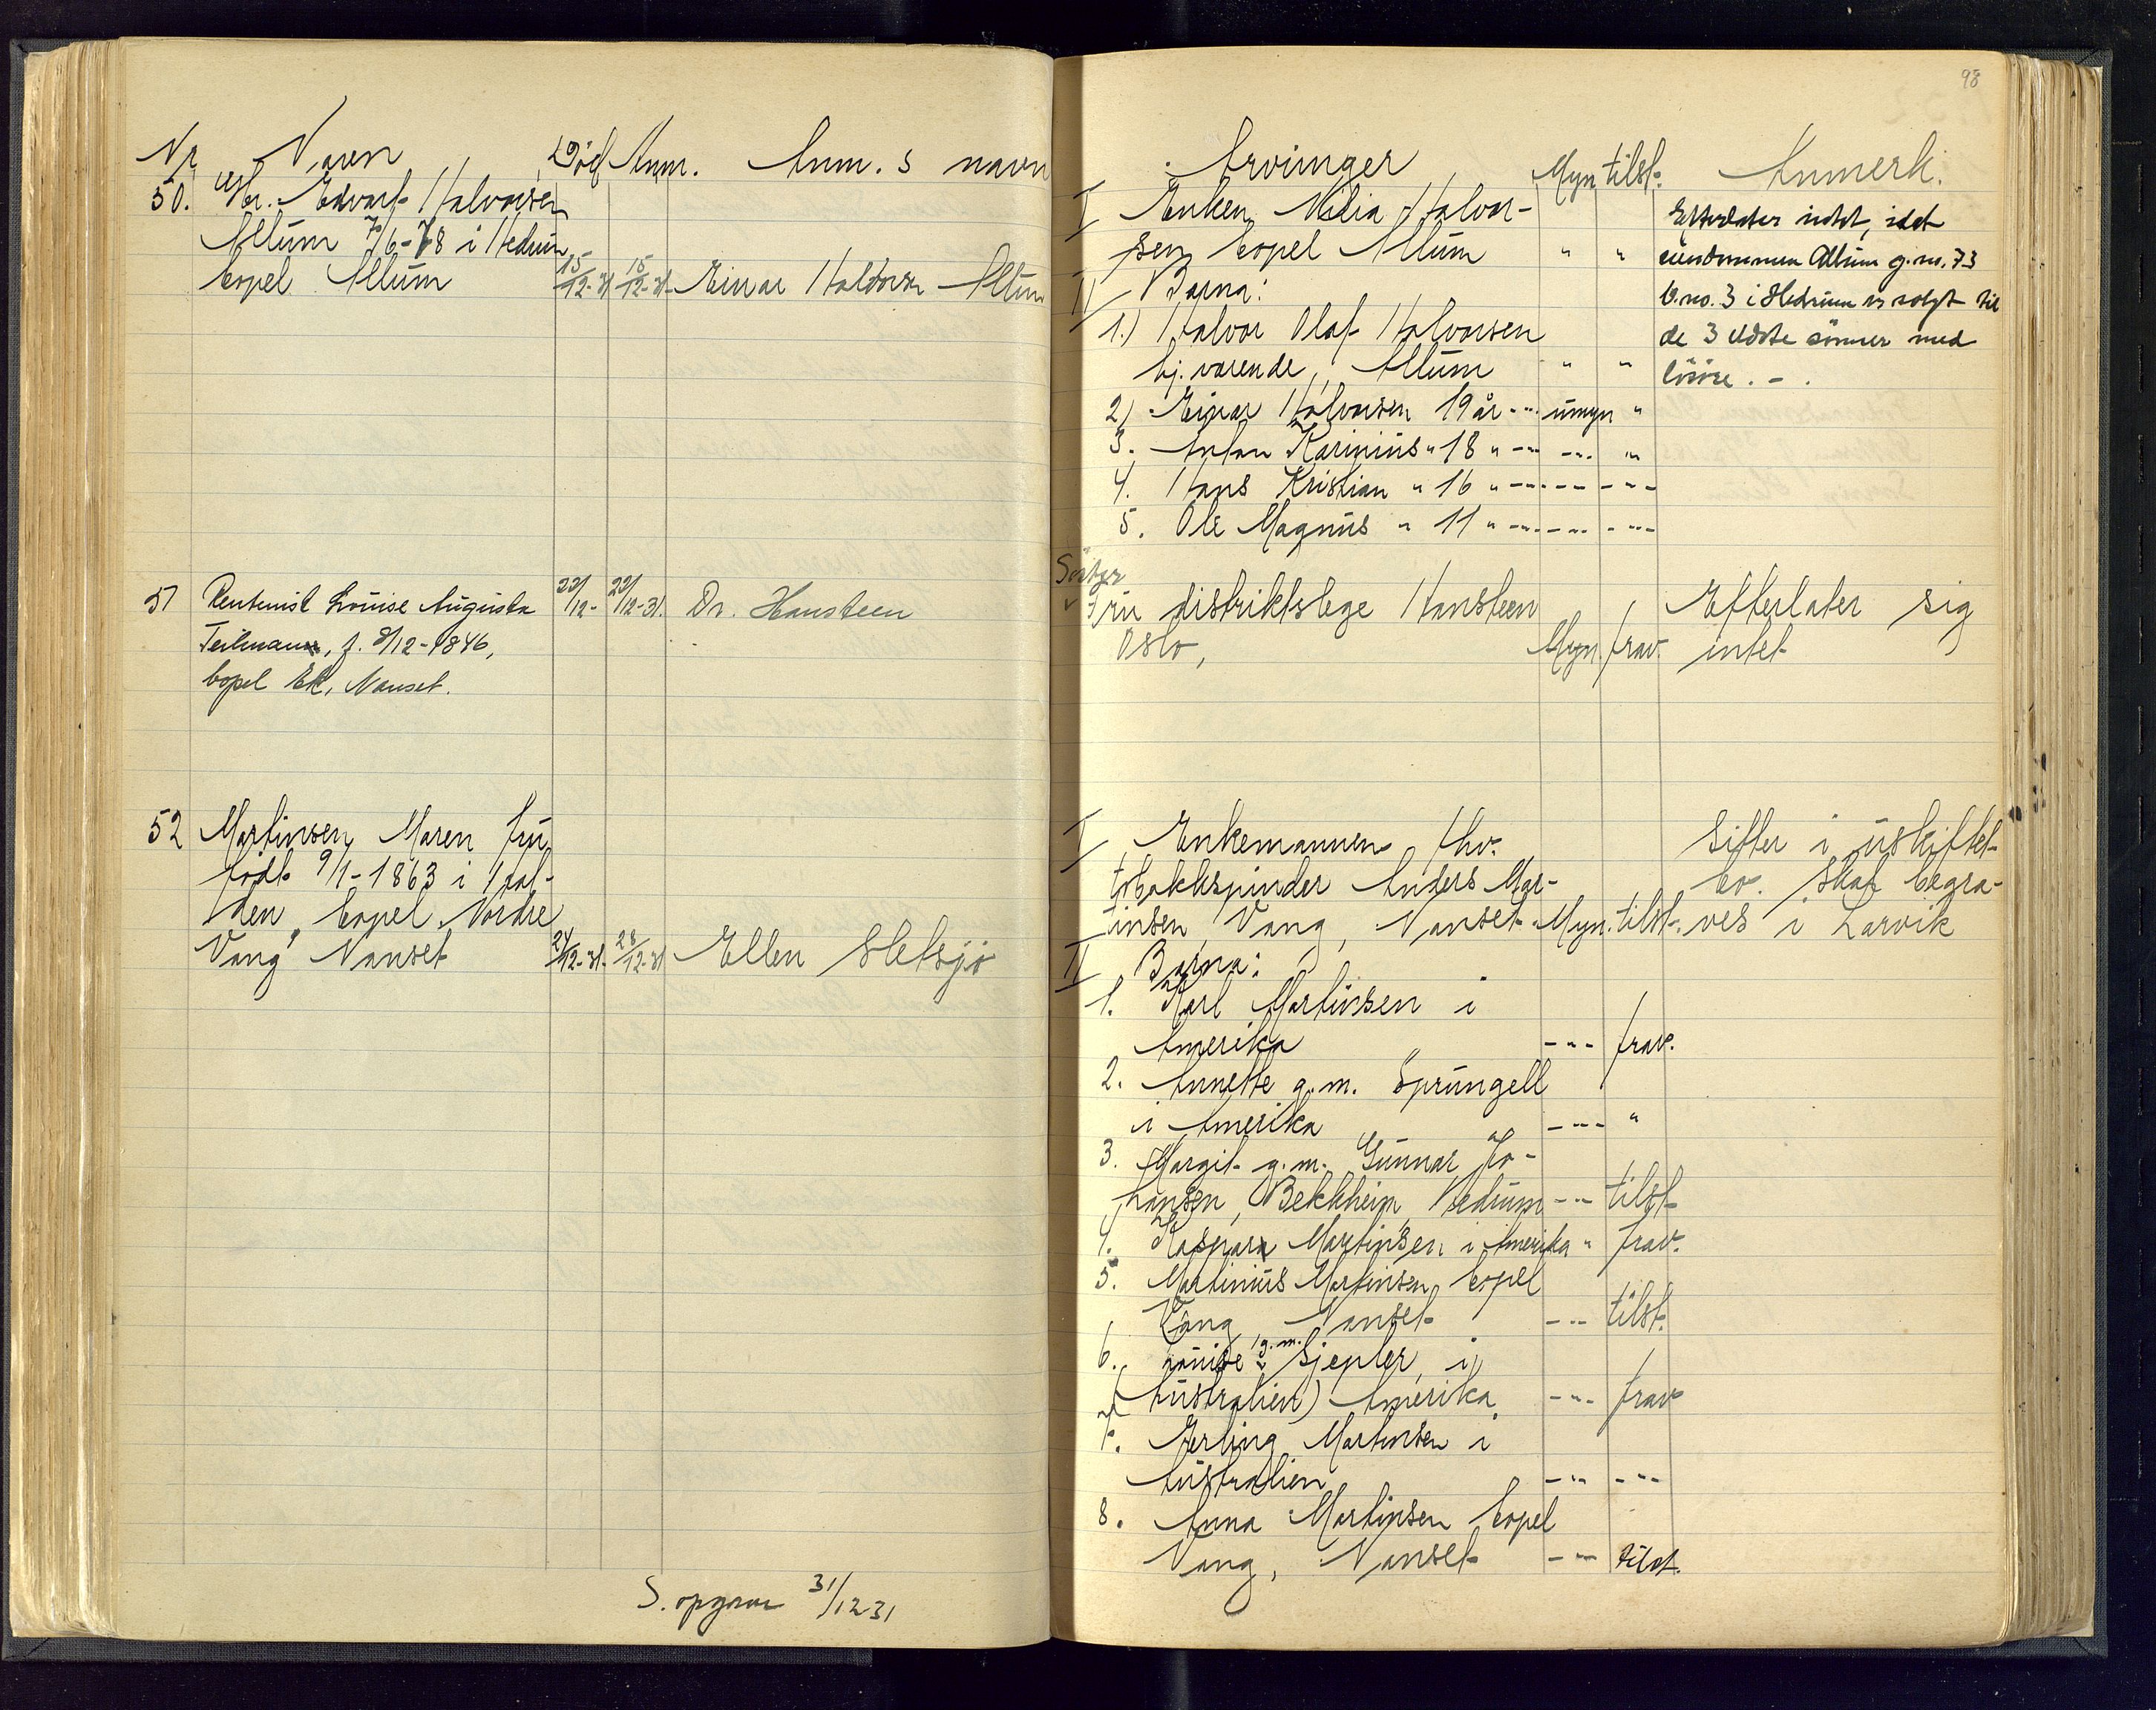 Nr Navn Död Anm. Anm.s navn
50. Gbr. Edvart Halvorsen
Allum 7/6-78 i Hedrum
bopel Allum 15/12-31 15/12-31- Einar Halvorsen Allum
51 Rentenist Louise Augusta 22/12- 22/12-31. Dr. Hansteen
Teilmann, f. 8/12-1846,
bopel Ek, Nanset.
52 Martinsen Maren fru
födt 9/1-1863 i Hal-
den, bopel Nordre
Vang Nanset 24/12-31. 28/12-31 Ellen Sletsjö
S. opgave 31/12 31
98
Arvinger Myn. tilst. Anmerk.
I Enken Milia Halvor-
sen bopel Allum " "
II Barna:
1.) Halvor Olaf Halvorsen
hj. varende, Allum " "
2) Einar Halvorsen 19 år -"- umyn "
3. Anton Karinius " 18 " -"- -"- "
4. Hans Kristian " 16 " -"- -"- -"-
5. Ole Magnus " 11 " -"- -"- -"-
Efterlater intet, idet
eiendommen Allum g.no. 73
b.no. 3 i Hedrum er solgt til
de 3 eldste sönner med
lösöre. - .
Söster
Fru distriktslege Hansteen Efterlater sig
Oslo, Myn. frav. intet
I Enkemannen fhv. Sitter i uskiftet
tobakkspinder Anders Mar- bo. Skal begra-
tinsen Vang, Nanset Myn. tilst. ves i Larvik
II Barna:
1. Karl Martinsen i
Amerika -"- frav.
2. Annette g.m. Sprungell
i Amerika -"- "
3. Margit g.m. Gunnar Jo-
hansen, Bekkheim Hedrum -"- tilst
4. Kaspara Martinsen i Amerika " frav.
5. Martinius Martinsen bopel
Vang Nanset -"- tilst.
6. Louise g.m. Sjepler, i
(Australien) Amerika -"- frav
7. Erling Martinsen i
Australien -"- -"-
8. Anna Martinsen bopel
Vang, Nanset -"- tilst.